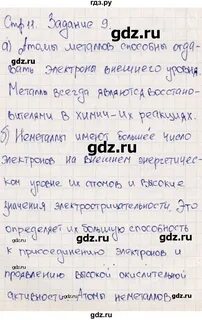 gdz.ru
Стр 11. Задание 9.
а) Атомы металлов способны отда-
вать электроны внешнего уровня.
Металлы всегда являются восстано-
вителями в химич-их реакциях.
б) Неметаллы имеют большее число
электронов на внешнем энергетичес-
ком уровне их атомов и высокие
значения электроотрицательности. Это
определяет их большую способность
к присоединению электронов и
проявлению высокой окислительной
активности. Атомы неметаллов
gdz.ru
gdz.ru
gdz.ru
gdz.ru
gdz.ru
gdz.ru